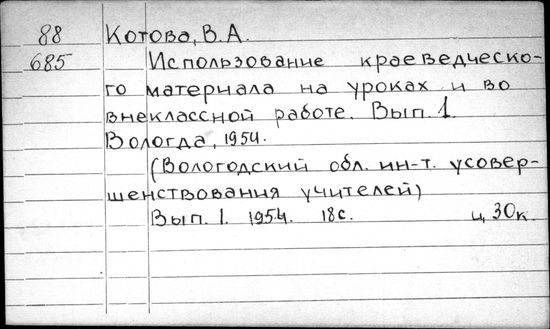 88 Котова, В.А.
685 Использование краеведческо-
го материала на уроках и во
внеклассной работе. Вып. 1.
Вологда, 1954.
(Вологодский обл. ин-т. усовер-
шенствования учителей)
Вып. 1. 1954. 18 с. ц. 30 к.